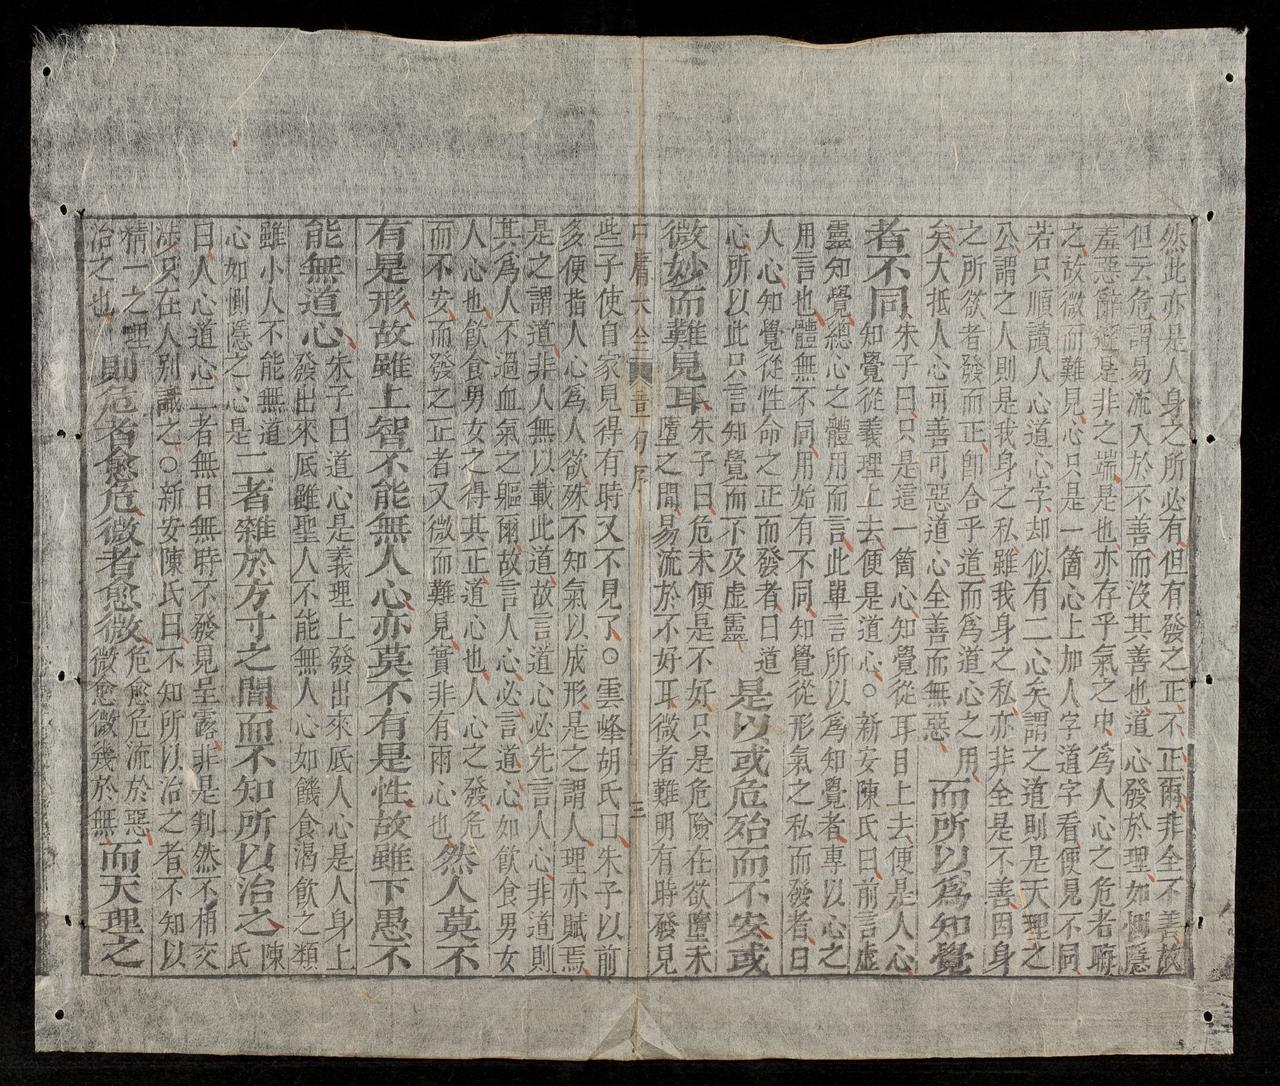 然此亦是人身之所必有但有發之正不正爾非全不善故
但云危謂易流入於不善而沒其善也道心發於理如惻隱
羞惡辭遜是非之端是也亦存乎氣之中為人心之危者晦
之故微而難見心只是一箇心上加人字道字看便見不同
若只順讀人心道心字却似有二心矣謂之道則是天理之
公謂之人則是我身之私雖我身之私亦非全是不善因身
之所欲者發而正卽合乎道而為道心之用
矣大抵人心可善可惡道心全善而無惡
而所以爲知覺
者不同
朱子曰只是這一箇心知覺從耳目上去便是人心
知覺從義理上去便是道心○新安陳氏曰前言虛
靈知覺總心之體用而言此單言所以為知覺者專以心之
用言也體無不同用始有不同知覺從形氣之私而發者曰
人心知覺從性命之正而發者曰道
心所以此只言知覺而不及虛靈
是以或危殆而不安或
微妙而難見耳
朱子曰危未便是不好只是危險在欲墮未
墮之間易流於不好耳微者難明有時發見
中庸大全 章句序 三
些子使自家見得有時又不見了○雲峰胡氏曰朱子以前
多便指人心為人欲殊不知氣以成形是之謂人理亦賦焉
是之謂道非人無以載此道故言道心必先言人心非道則
其為人不過血氣之軀爾故言人心必言道心如飲食男女
人心也飲食男女之得其正道心也人心之發危
而不安而發之正者又微而難見實非有兩心也
然人莫不
有是形故雖上智不能無人心亦莫不有是性故雖下愚不
能無道心
朱子曰道心是義理上發出來底人心是人身上
發出來底雖聖人不能無人心如饑食渴飲之類
雖小人不能無道
心如惻隱之心是
二者雜於方寸之間而不知所以治之
陳
氏
曰人心道心二者無日無時不發見呈露非是判然不相交
涉只在人別識之○新安陳氏曰不知所以治之者不知以
精一之理
治之也
則危者愈危微者愈微
危愈危流於惡
微愈微幾於無
而天理之